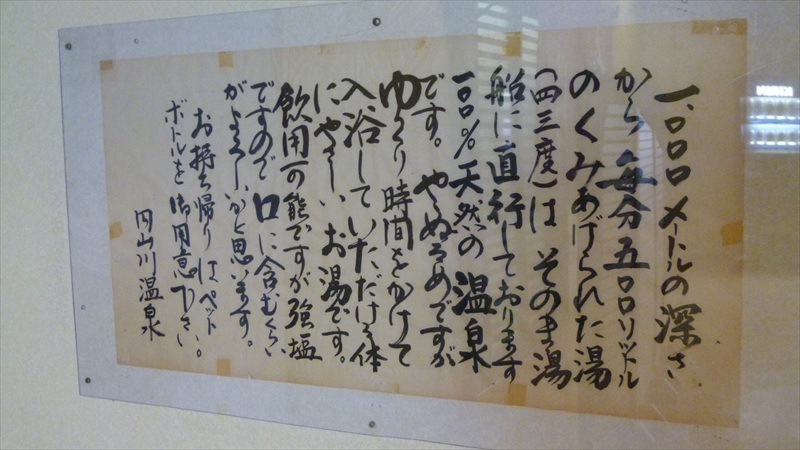 一、〇〇〇メートルの深さ
から毎分五〇〇リットル
のくみあげられた湯
(四三度)はそのまま湯
船に直行しております
一〇〇%天然の温泉
です。ややぬるめですが
ゆっくり時間をかけて
入浴していただける体
にやさしいお湯です。
飲用可能ですが強塩
ですので口に含むくらい
がよろしいかと思います。
お持ち帰りはペット
ボトルを御用意下さい。
円山川温泉